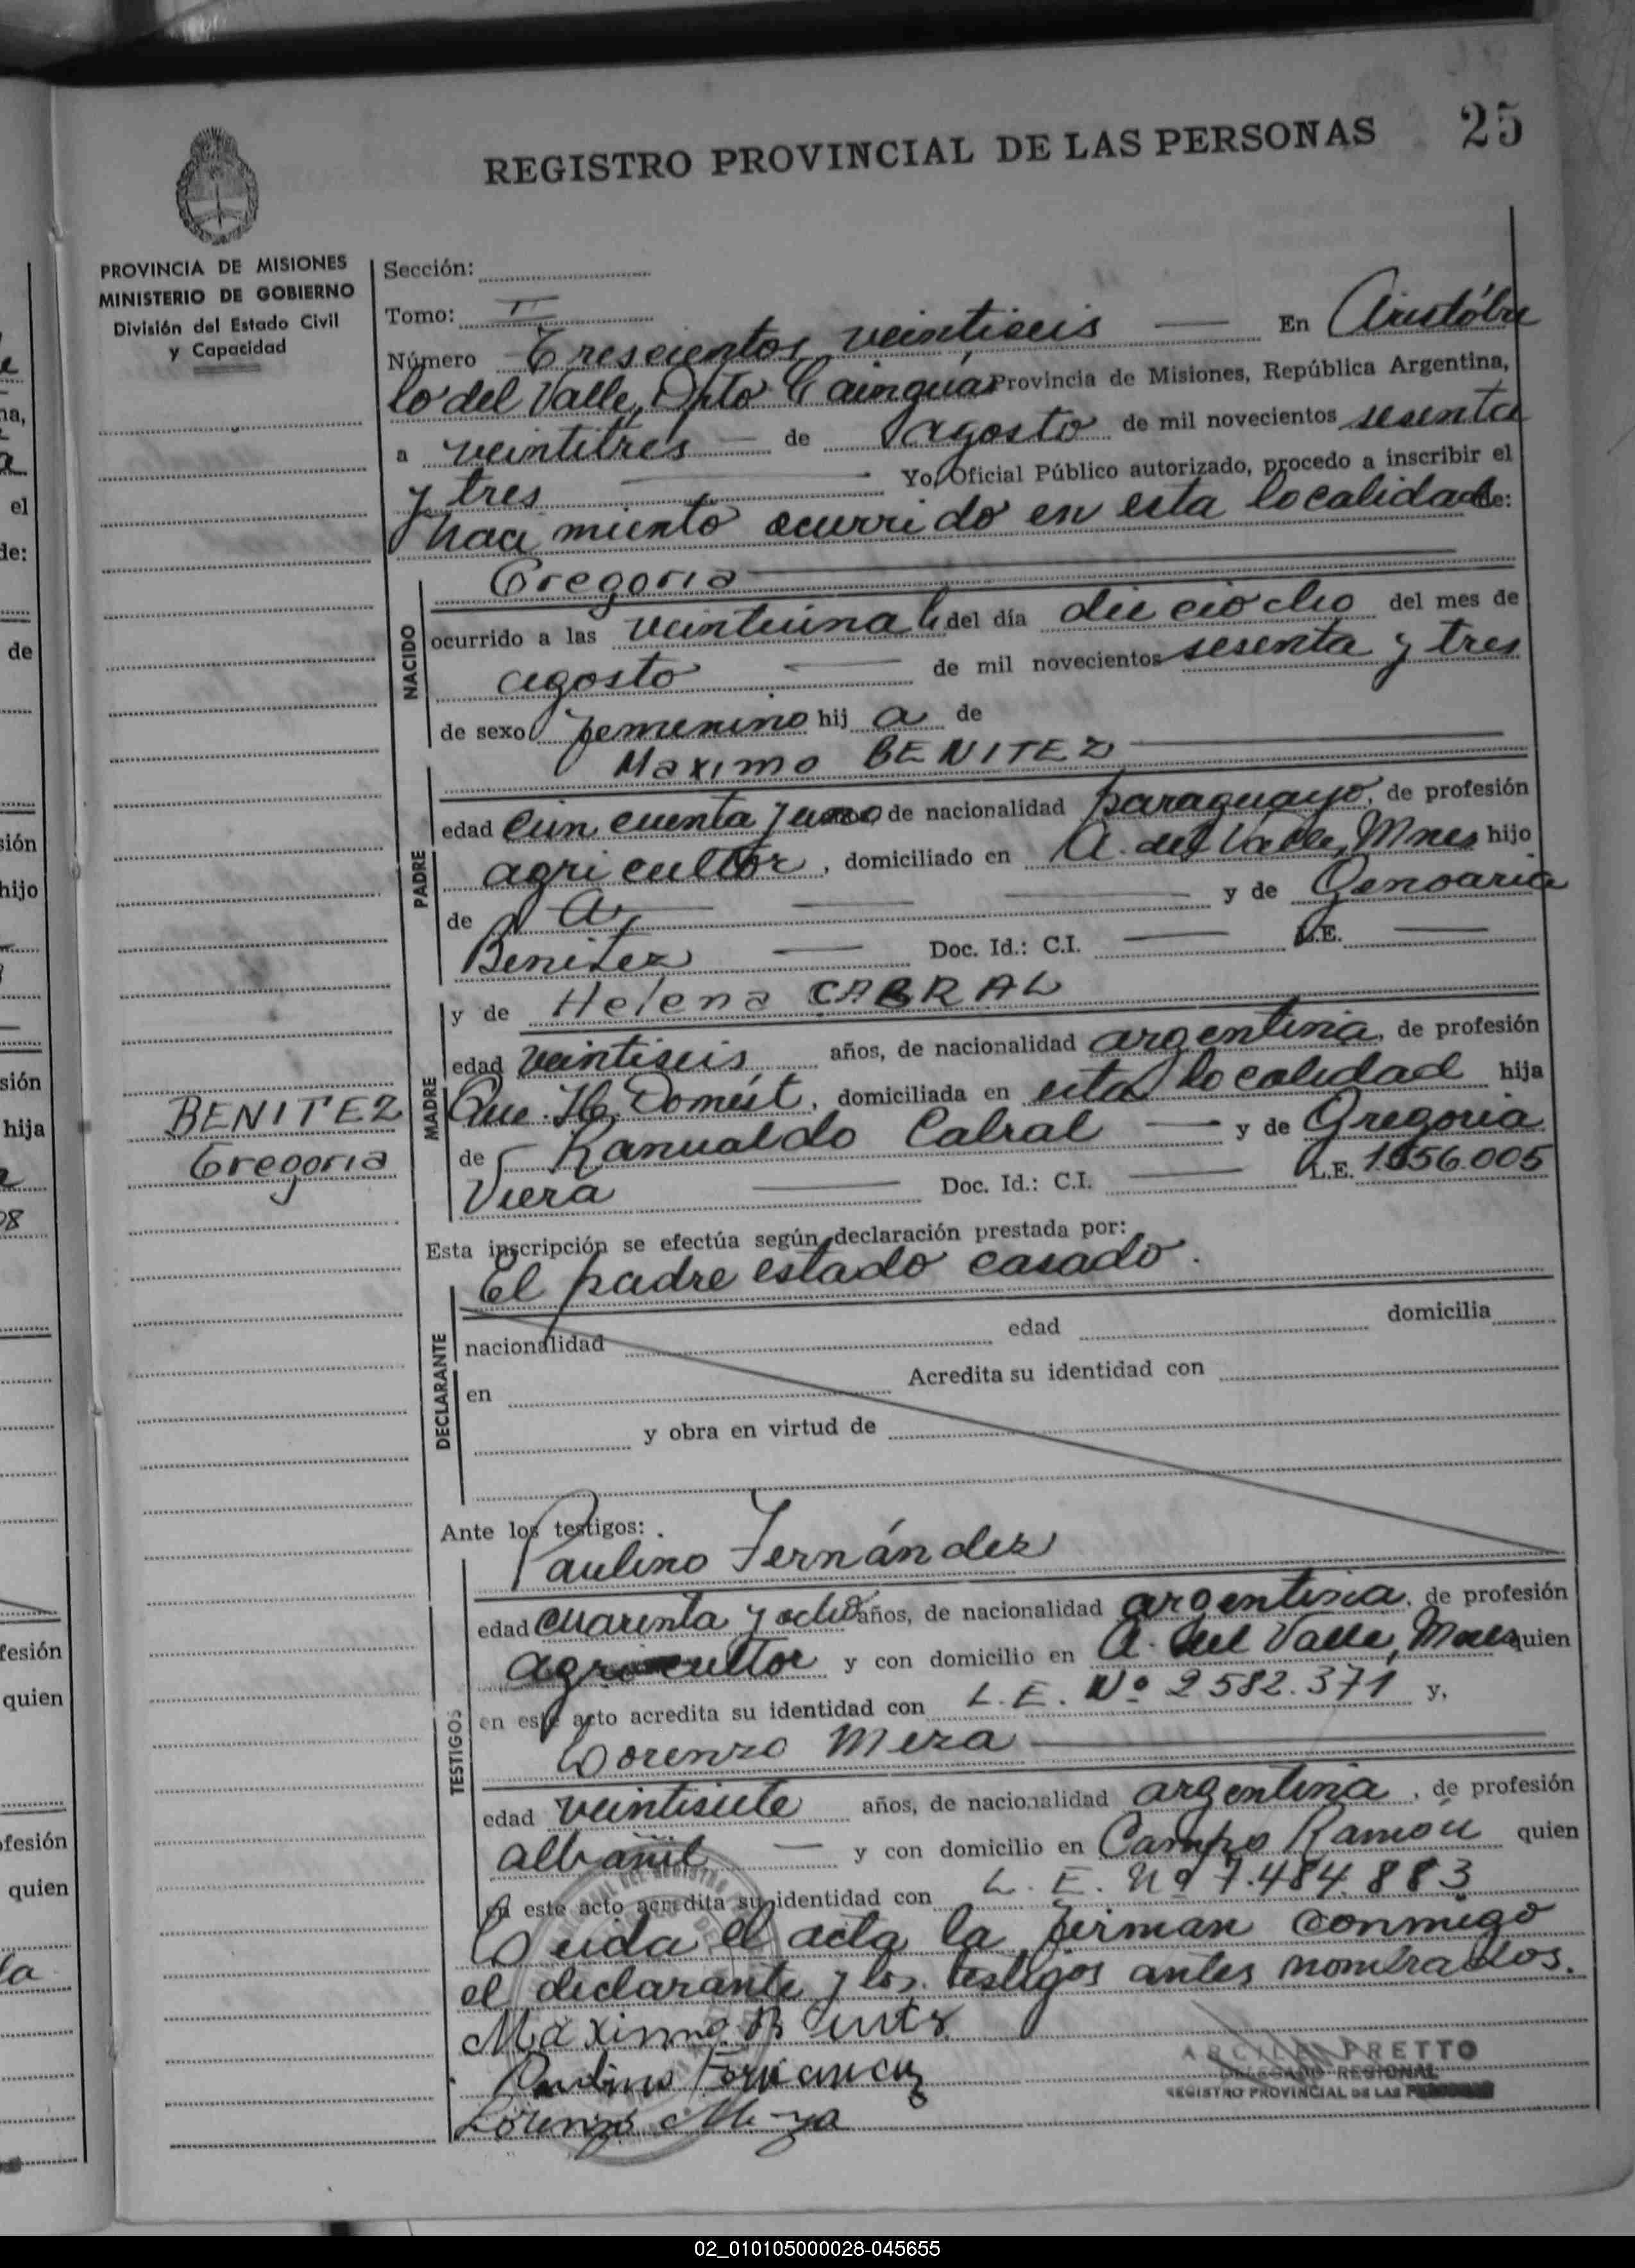 25
REGISTRO PROVINCIAL DE LAS PERSONAS
PROVINCIA DE MISIONES
MINISTERIO DE GOBIERNO
División del Estado Civil
y Capacidad
Sección:
Tomo: II
Número Trescientos veintiseis En Aristóbu
lo del Valle, Dpto Cainguás Provincia de Misiones, República Argentina,
a veintitres de agosto de mil novecientos sesenta
y tres Yo, Oficial Público autorizado, procedo a inscribir el
nacimiento ocurrido en esta localidad de:
NACIDO
Gregoria
ocurrido a las veintiuna h del día dieciocho del mes de
agosto de mil novecientos sesenta y tres
de sexo femenino hij a de
PADRE
Maximo BENITEZ
edad cincuenta y uno de nacionalidad paraguayo, de profesión
agricultor, domiciliado en A. del Valle, Mnes hijo
de y de Genoaria
Benitez Doc. Id.: C.I. L.E.
MADRE
y de Helena CABRAL
edad veintiseis años, de nacionalidad argentina, de profesión
Que. H. Domést, domiciliada en esta localidad hija
de Ranualdo Cabral y de Gregoria
Viera Doc. Id.: C.I. L.E. 1.656.005
BENITEZ
Gregoria
Esta inscripción se efectúa según declaración prestada por:
DECLARANTE
El padre estado casado.
nacionalidad edad domicilia
en Acredita su identidad con
y obra en virtud de
Ante los testigos:
TESTIGOS
Paulino Fernández
edad cuarenta y ocho años, de nacionalidad argentina, de profesión
agricultor y con domicilio en A. del Valle, Mnes quien
en este acto acredita su identidad con L.E. Nº 2582.371 y,
Lorenzo Meza
edad veintisiete años, de nacionalidad argentina, de profesión
albañil y con domicilio en Campo Ramón quien
en este acto acredita su identidad con L.E. Nº 7.484.883
Leida el acta la firman conmigo
el declarante y los testigos antes nombrados.
Maximo Benitez
Paulino Fernandez
Lorenzo Meza
PRETTO
DELEGADO REGIONAL
REGISTRO PROVINCIAL DE LAS PERSONAS
02_010105000028-045655